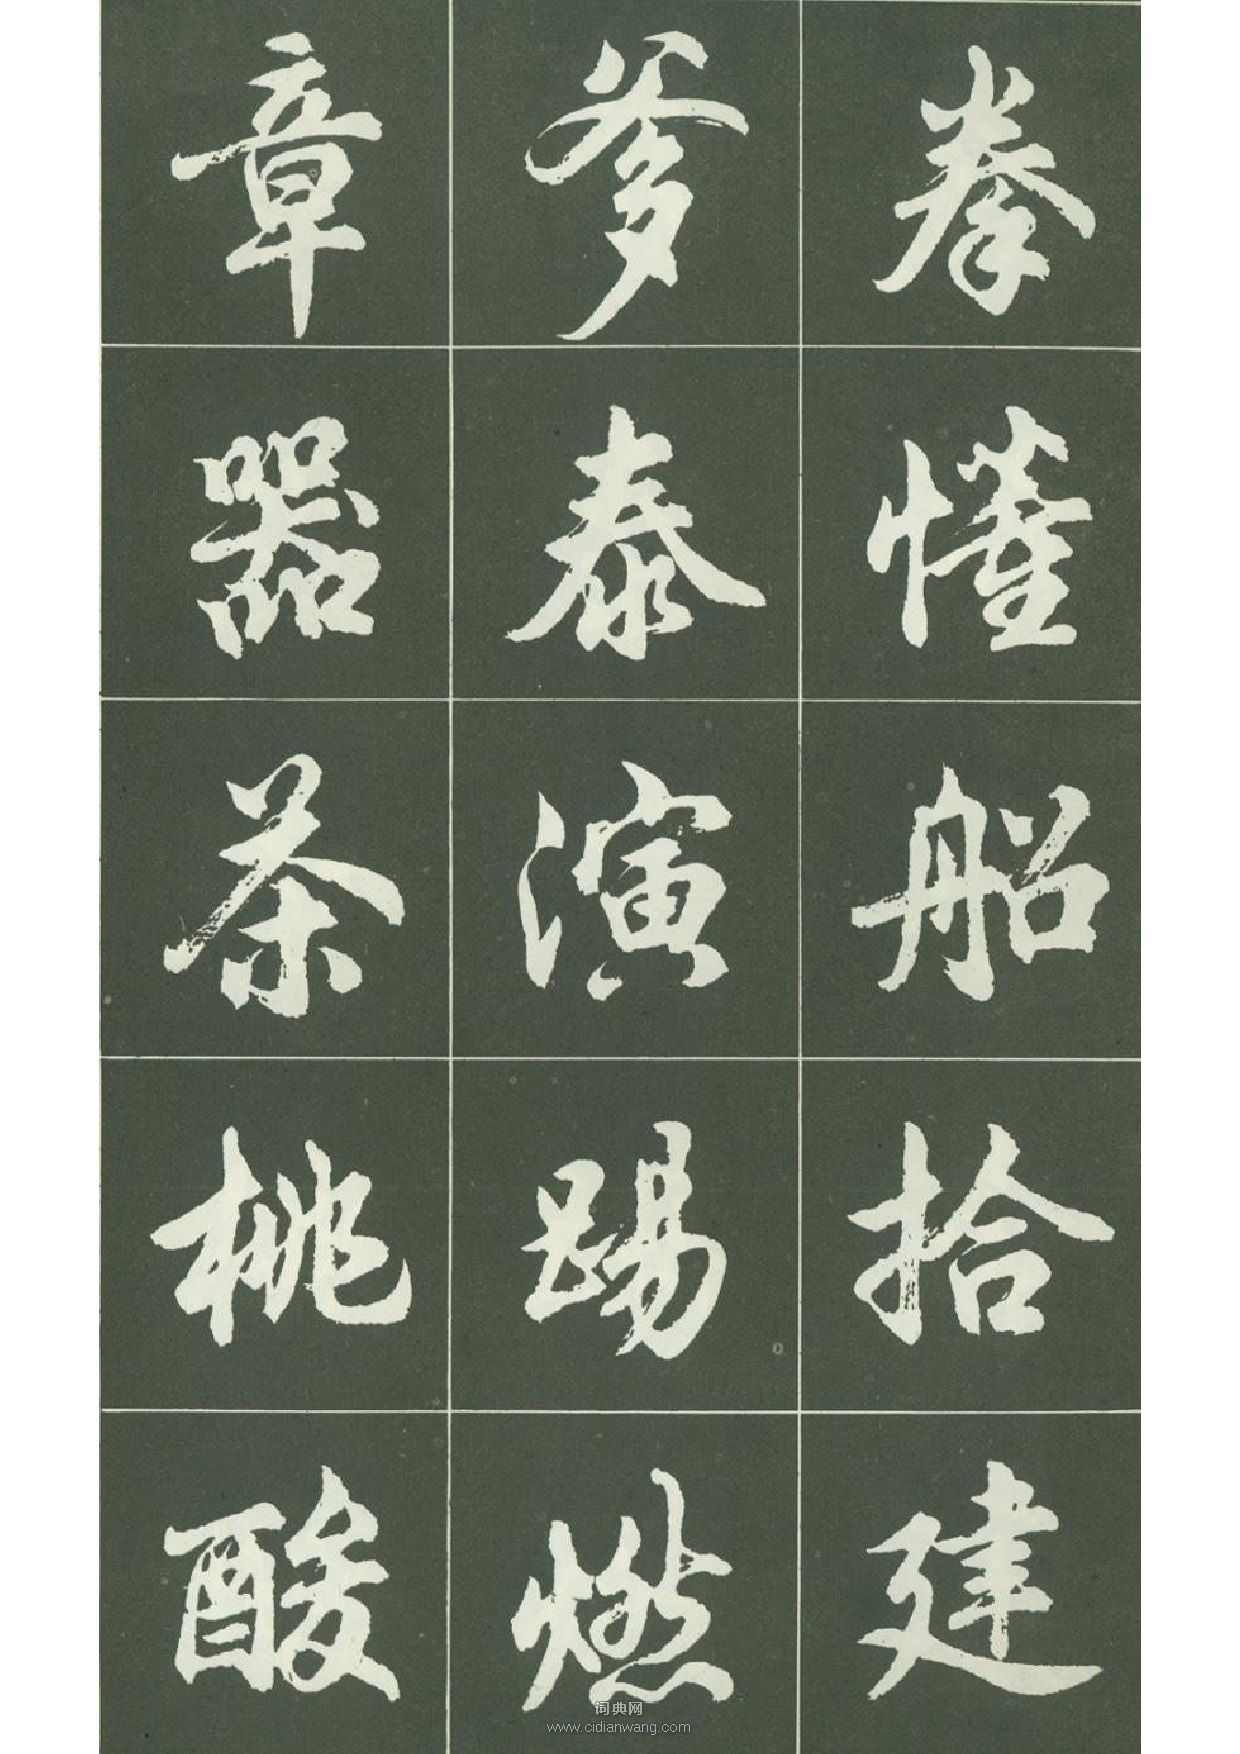 拳懂船拾建
爹泰演踢燃
章器茶桃酸
词典网
www.cidianwang.com